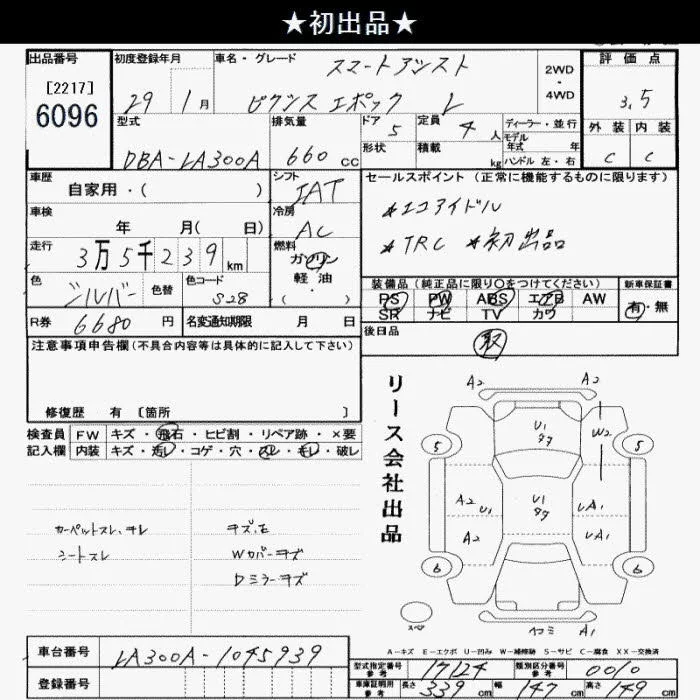 ★初出品★
出品番号
[2217]
6096
初度登録年月
29 1月
車名・グレード
スマートアシスト
ピクシス エポック L
2WD
・
4WD
評価点
3.5
型式
DBA-LA300A
排気量
660 cc
ドア 5
形状
定員 4 人
積載 kg
ディーラー・並行
モデル年式 年
ハンドル 左・右
外装 内装
C C
車歴
自家用・( )
シフト
IAT
セールスポイント(正常に機能するものに限ります)
*エコアイドル
*TRC *初出品
車検
年 月( 日)
冷房
AC
走行
3万5千239km
燃料
ガソリン
軽油
・
( )
色
シルバー
色替
色コード
S28
装備品(純正品に限り○をつけてください)
PS PW ABS エアB AW
SR ナビ TV カワ
新車保証書
有・無
R券 6680 円
名変通知期限 月 日
後日品
取
注意事項申告欄(不具合内容等は具体的に記入して下さい)
修復歴 有 [箇所 ]
検査員記入欄
FW キズ・飛石・ヒビ割・リペア跡・×要
内装 キズ・汚レ・コゲ・穴・スレ・モレ・破レ
カーペットスレ、ヨレ
シートスレ
キズ、E
Wカバーキズ
Dミラーキズ
リース会社出品
A2 A2
U1
タク
W2
5 5
A2 U1
U1
タク
UA1
A2
UA1
6 6
スペア
A1
A-キズ E-エクボ U-凹み W-補修跡 S-サビ C-腐食 XX-交換済
車台番号
LA300A-1045939
登録番号
型式指定番号 参考
17124
類別区分番号 参考
0010
車庫証明用 参考
長さ 339 cm
幅 147 cm
高さ 149 cm